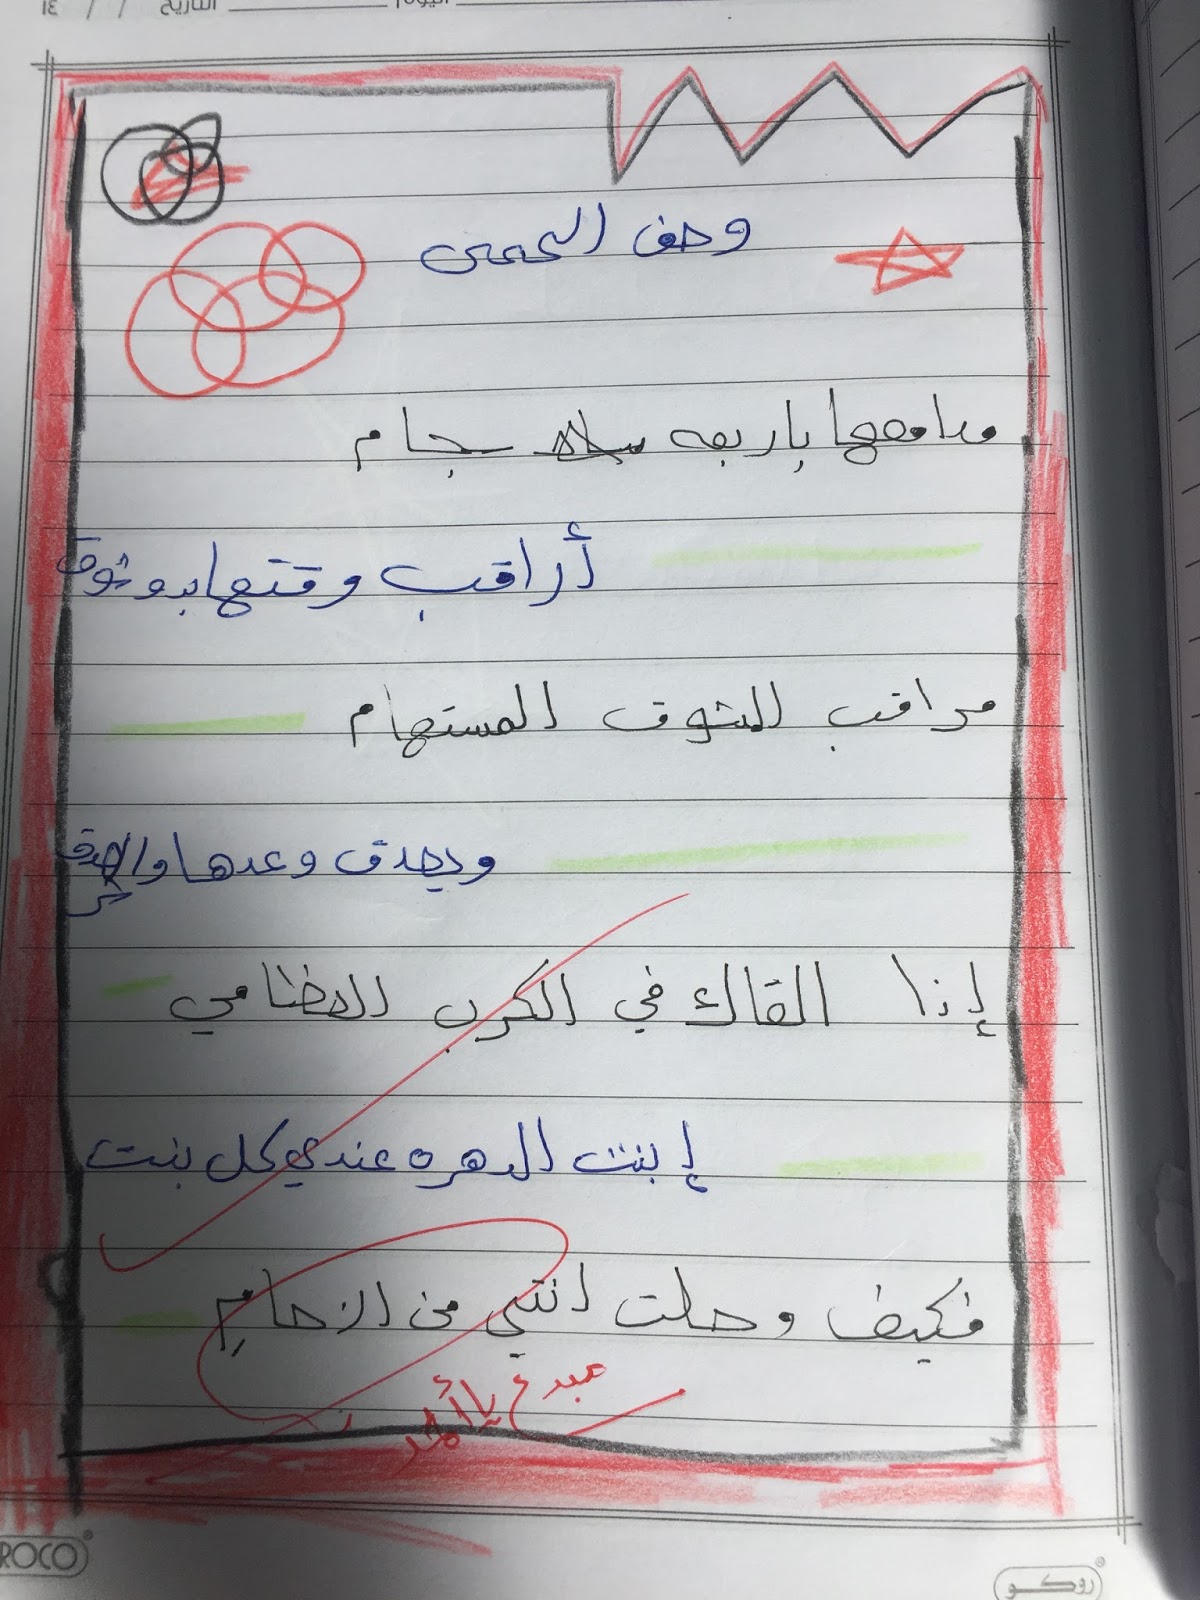 التاريخ / / ١٤
وصف الحمى
مدامعها باربعه سجام
أراقب وقتها بدو ثوق
مراقب المشوق المستهام
ويصدق وعدها والصدق
شر
إذا القاك في الكرب العظامي
إبنت الدهره عندي كل بنت
فكيف وصلت انتي من الزحام
مبدع يا أحمد
ROCO
روكو